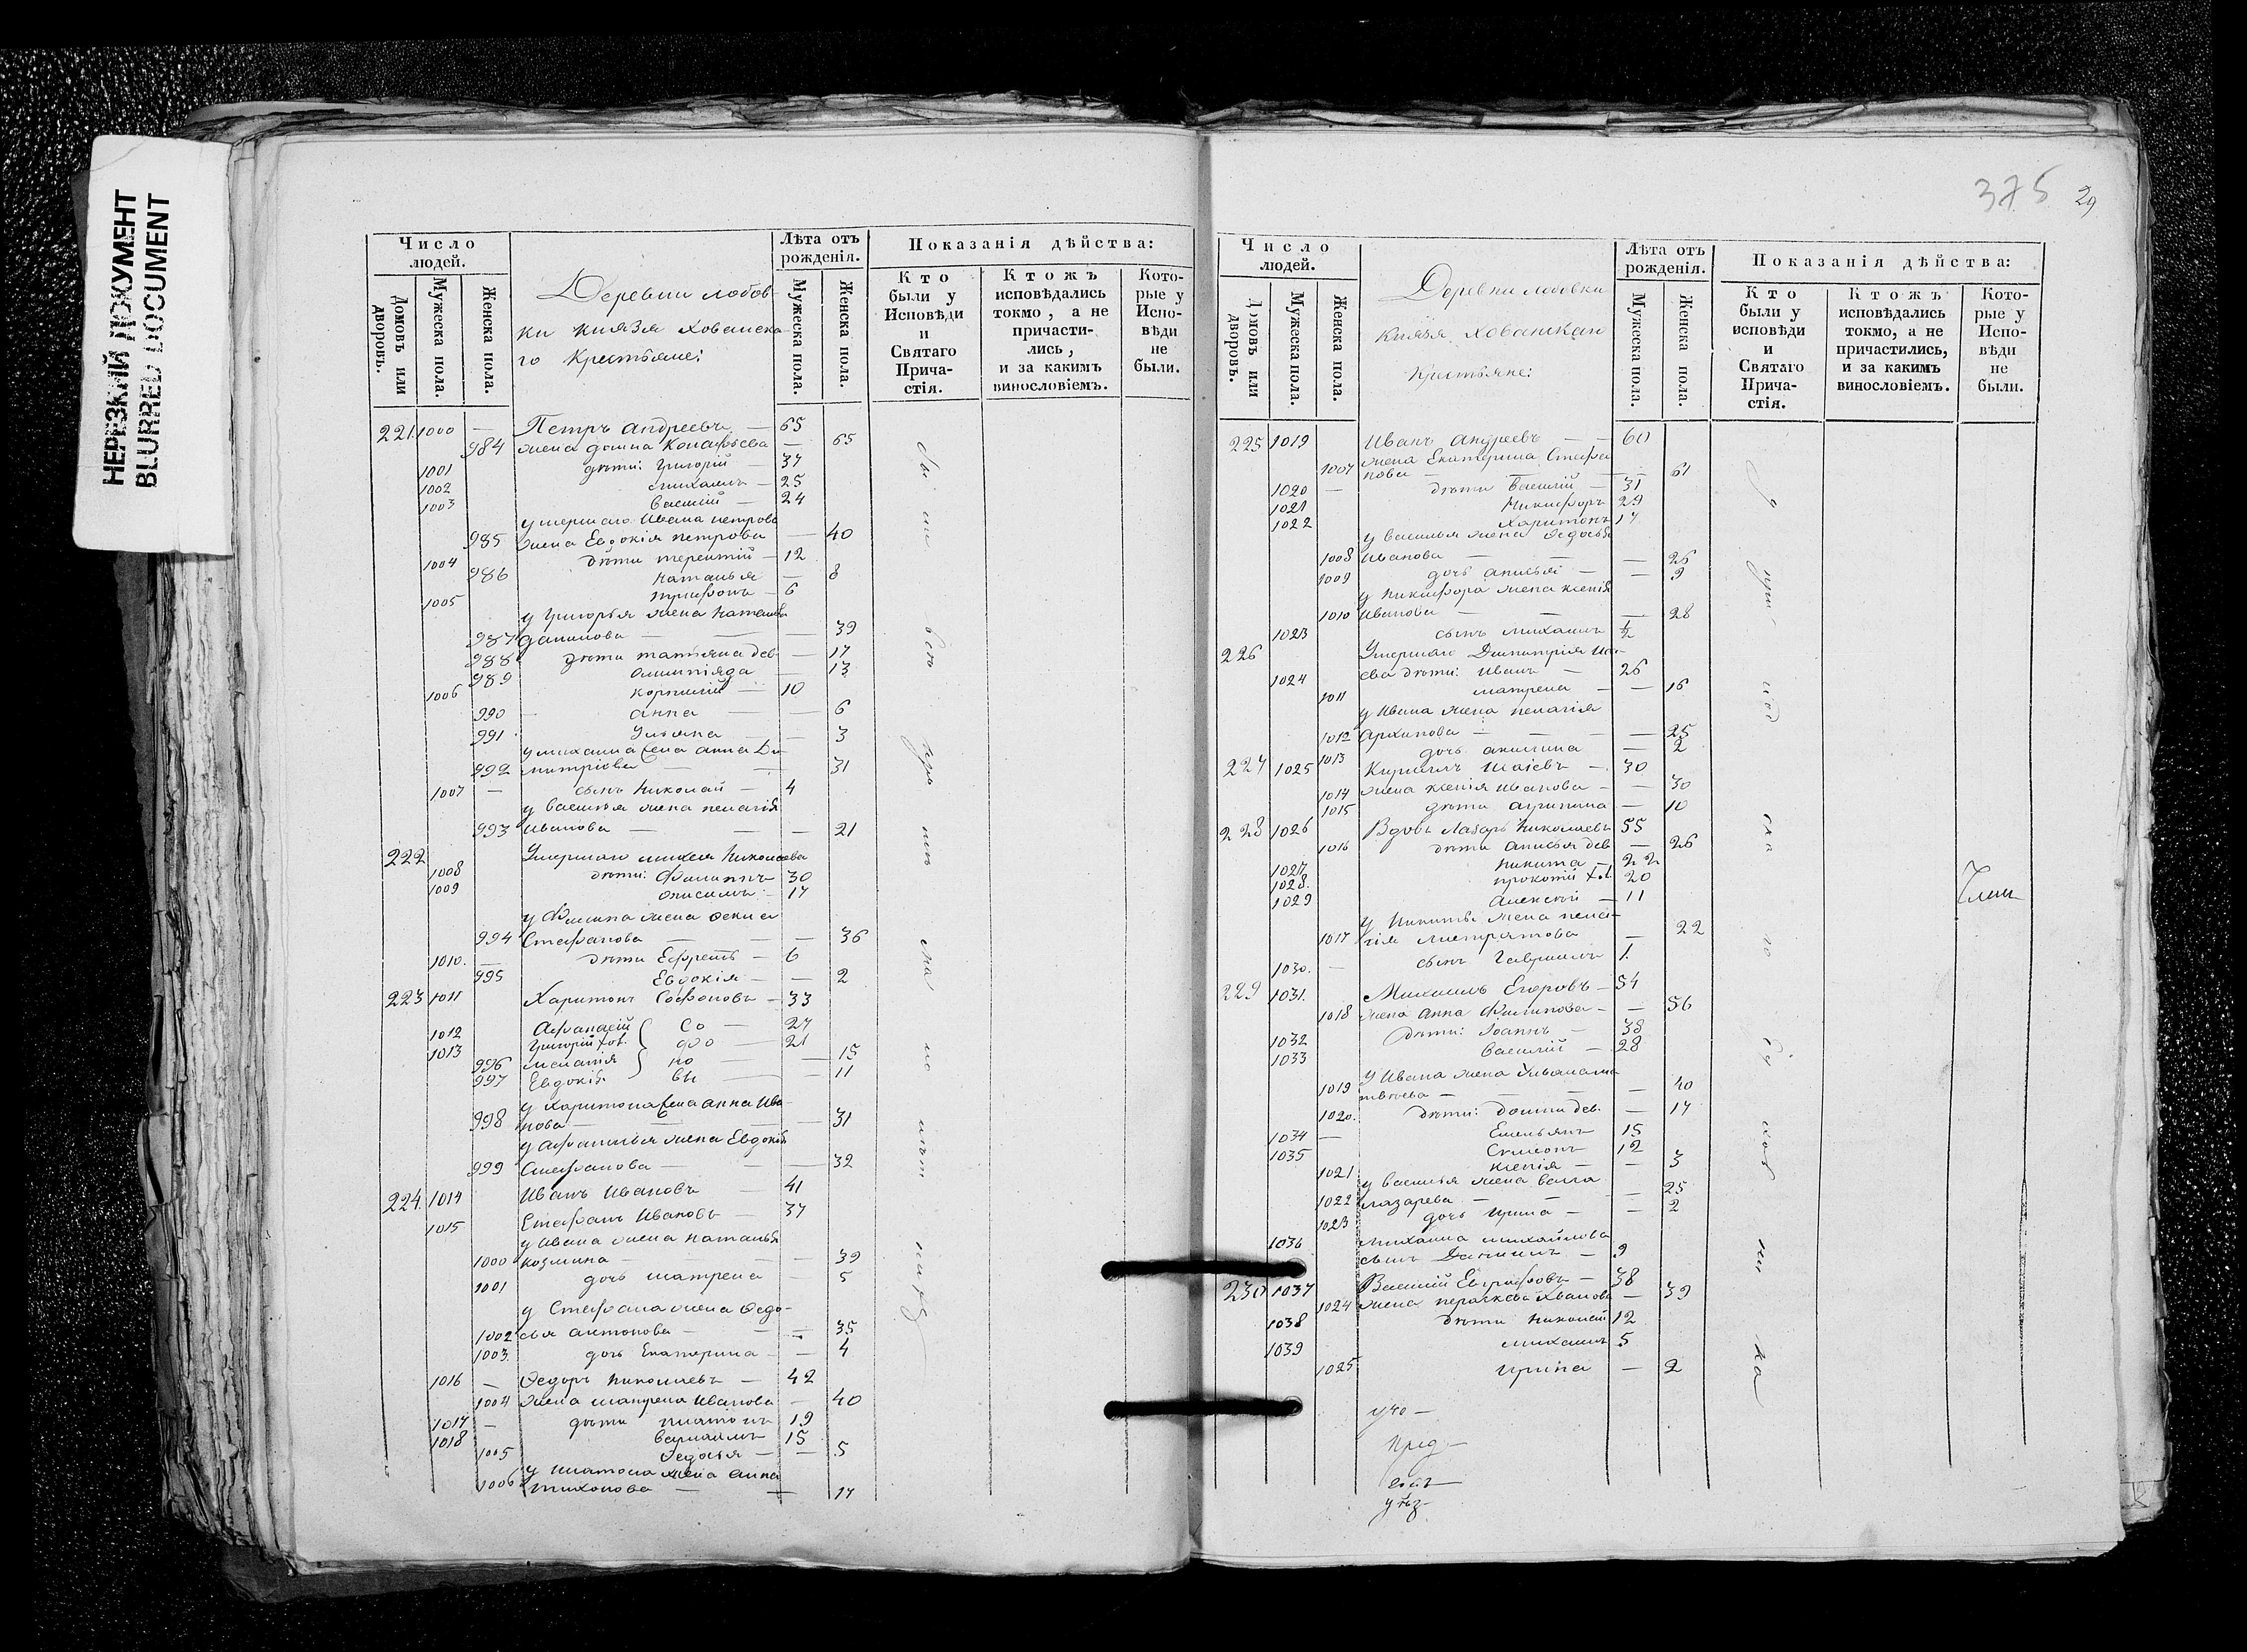 НЕРЕЗКИЙ ДОКУМЕНТ
BLURRED DOCUMENT
Число людей.
Домовъ или дворовъ.
Мужеска пола.
Женска пола.
Деревни лобов-
ки князя Хованска-
го Крестьяне:
Лѣта отъ рожденія.
Мужеска пола.
Женска пола.
Показанія дѣйства:
Кто были у Исповѣди и Святаго Прича-стія.
Ктожъ исповѣдались токмо, а не причасти-лись, и за какимъ винословіемъ.
Кото-рые у Испо-вѣди не были.
221 1000 — Петръ Андреевъ — 65
984 жена домна — 65
1001 дѣти: Григорій — 37
1002 михаилъ — 25
1003 василій — 24
умершаго Ивана петрова
985 жена Евдокія петрова — 40
1004 дѣти терентій — 12
986 наталья — 8
1005 трифонъ — 6
у Григорья жена наталья
987 данилова — 39
988 дѣти татьяна дев — 17
989 олимпіяда — 13
1006 корнилій — 10
990 анна — 6
991 Ульяна — 3
у михаила жена анна Ди-
992 митріева — 31
1007 — сынъ Николай — 4
у василья жена пелагія
993 Иванова — 21
222 Умершаго михея Николаева
1008 дѣти: Филиппъ 30
1009 онисимъ — 17
у Филипа жена
994 Стефанова — 36
1010. — дѣти Ефремъ — 6
995 Евдокія — 2
223 1011 Харитонъ Софоновъ — 33
1012 Афанасій Со — 27
1013 Григорій хол. дво — 21
996 меланія ро — 15
997 Евдокія вы — 11
у Харитона жена анна Ива-
998 нова — 31
у Афанасья жена Евдокія
999 Стефанова — 32
224. 1014 Иванъ Ивановъ — 41
1015 Стефанъ Ивановъ — 37
у Ивана жена наталья
1000 козмина — 39
1001 дочь матрена — 5
у Стефана жена Ѳедо-
1002 сья антонова — 35
1003. дочь Екатерина — 4
1016 — Ѳедоръ николаевъ — 42
1004 жена матрена Иванова — 40
1017 — дѣти платонъ 19
1018 варлаамъ 15
1005 Ѳедосья — 5
у платона жена анна
1006 тихонова — 17
375 29
Число людей.
Домовъ или дворовъ.
Мужеска пола.
Женска пола.
Деревни лобовки
князя Хованскаго
Крестьяне:
Лѣта отъ рожденія.
Мужеска пола.
Женска пола.
Показанія дѣйства:
Кто были у исповѣди и Святаго Прича-стія.
Ктожъ исповѣдались токмо, а не причастились, и за какимъ винословіемъ.
Кото-рые у Испо-вѣди не были.
225 1019 Иванъ Андреевъ — 60
жена Екатерина Стефа
1007 нова — 61
1020 — дѣти Василій — 31
1021 Никифоръ 29
1022 Харитонъ 17
у василья жена Ѳедосья
1008 Иванова — 26
1009 дочь анисья — 9
у Никифора жена ксенія
1010 Иванова — 28
1023 сынъ михаилъ 1/2
226 Умершаго Димитрія Иса-
1024 ева дѣти: Иванъ — 26
1011 матрена — 16
у Ивана жена пелагія
1012 Архипова — 25
1013 дочь акилина — 2
227 1025 Кирилъ Исаіевъ — 30
1014 жена ксенія иванова — 30
1015 дѣти агрипина — 10
228 1026 Вдовъ Лазарь Николаевъ 55
1016 дѣти анисья дев — 26
1027 никита — 22
1028. прокопій хол. 20
1029 Алексій — 11
у Никиты жена пела-
1017 гія — 22
1030. — сынъ Гавриилъ 1.
229 1031. Михаилъ Егоровъ — 54
1018 жена Анна Филипова — 56
1032 дѣти: Іоаннъ — 38
1033 Василій — 28
у Ивана жена Ульяна ма
1019 твѣева — 40
1020. дѣти: домна дев. — 17
1034 — Емельянъ 15
1035 Симеонъ 12
1021 ксенія — 3
у василья жена васса
1022 лазарева — 25
1023 дочь ирина — 2
михаила михайлова
1036 сынъ Даніилъ — 9
230 1037 Василій Евграфовъ — 38
1024 жена параскева Иванова — 39
1038 дѣти Николай 12
1039 михаилъ 5
1025 ирина — 2